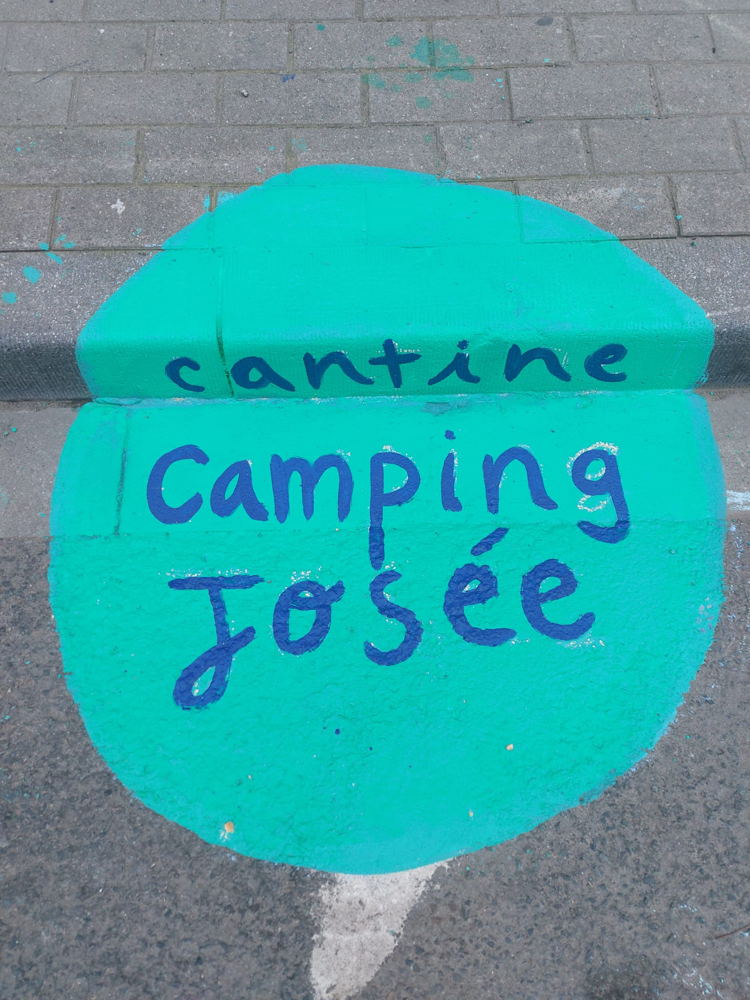 cantine
camping
Josée